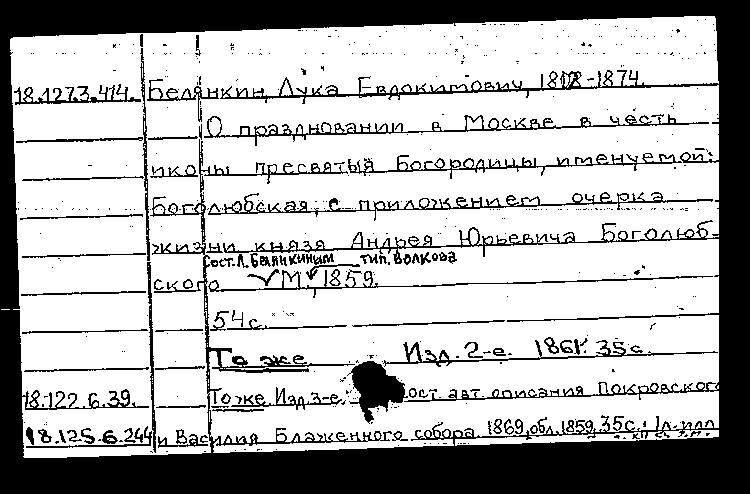 18.127.3.414. Белянкин, Лука Евдокимович, 1812-1874.
О праздновании в Москве в честь
иконы пресвятыя Богородицы, именуемой:
Боголюбская, с приложением очерка
жизни князя Андрея Юрьевича Боголюб-
Сост. Л. Белянкиным тип. Волкова
ского М., 1859.
54 с.
То же Изд. 2-е. 1861. 35 с.
18.122.6.39. То же Изд. 3-е. сост. авт. описания Покровского
18.125.6.244 и Василия Блаженного собора. 1869, обл. 1859. 35 с.; 1 л. илл